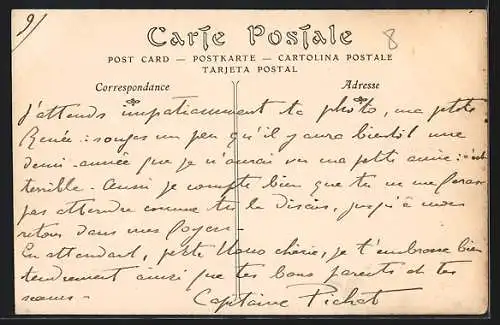 91
8
Carte Postale
POST CARD — POSTKARTE — CARTOLINA POSTALE
TARJETA POSTAL
Correspondance
Adresse
J'attends impatiemment ta photo, ma petite
Renée : songes un peu qu'il y aura bientôt une
demi-année que je n'aurai vu ma petite amie : c'est
terrible - Aussi je compte bien que tu ne me feras
pas attendre comme tu le disais, jusqu'à mon
retour dans mes foyers -
En attendant, petite chérie, je t'embrasse bien
tendrement ainsi que tes bons parents et tes
sœurs -
Capitaine Pichot